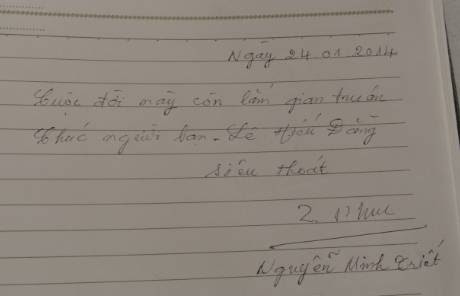 Ngày 24.01.2014
Cuộc đời này còn lắm gian truân
Chúc người bạn - Lê Hiếu Đằng
siêu thoát
Nguyễn Minh Triết